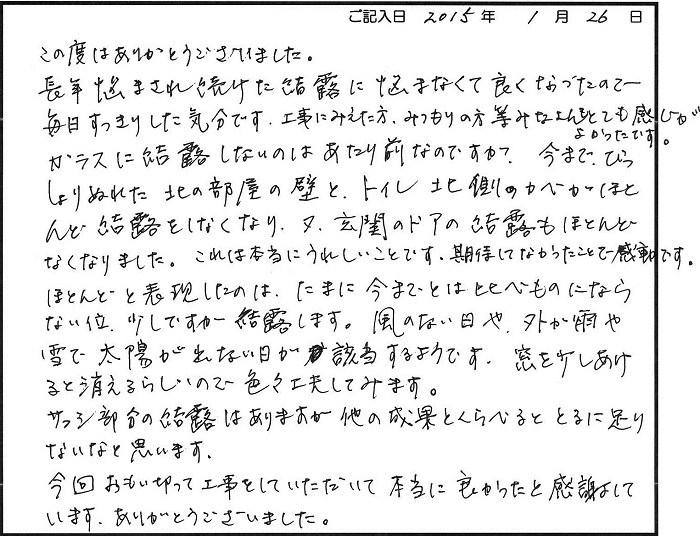 ご記入日 2015年 1月 26日
この度はありがとうございました。
長年悩まされ続けた結露に悩まなくて良くなったので
毎日すっきりした気分です。工事にみえた方、みつもりの方等みなさんとても感じが
よかったです。
ガラスに結露しないのはあたり前なのですが、今まで、びっ
しょりぬれた北の部屋の壁と、トイレ北側のカベがほと
んど結露をしなくなり、又、玄関のドアの結露もほとんど
なくなりました。これは本当にうれしいことです。期待してなかったことで感動です。
ほとんどと表現したのは、たまに今までとは比べものになら
ない位、少しですが結露します。風のない日や、外が雨や
雪で太陽が出ない日が該当するようです。窓を少しあけ
ると消えるらしいので色々工夫してみます。
サッシ部分の結露はありますが他の成果とくらべるととるに足り
ないなと思います。
今回おもい切って工事をしていただいて本当に良かったと感謝して
います。ありがとうございました。